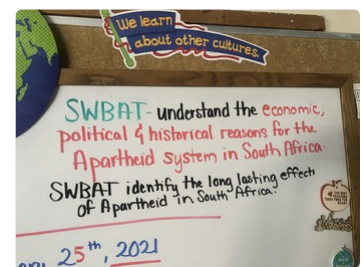 We learn
about other cultures.
SWBAT- understand the economic,
political & historical reasons for the
Apartheid system in South Africa.
SWBAT identify the long lasting effects
of Apartheid in South Africa.
25th, 2021